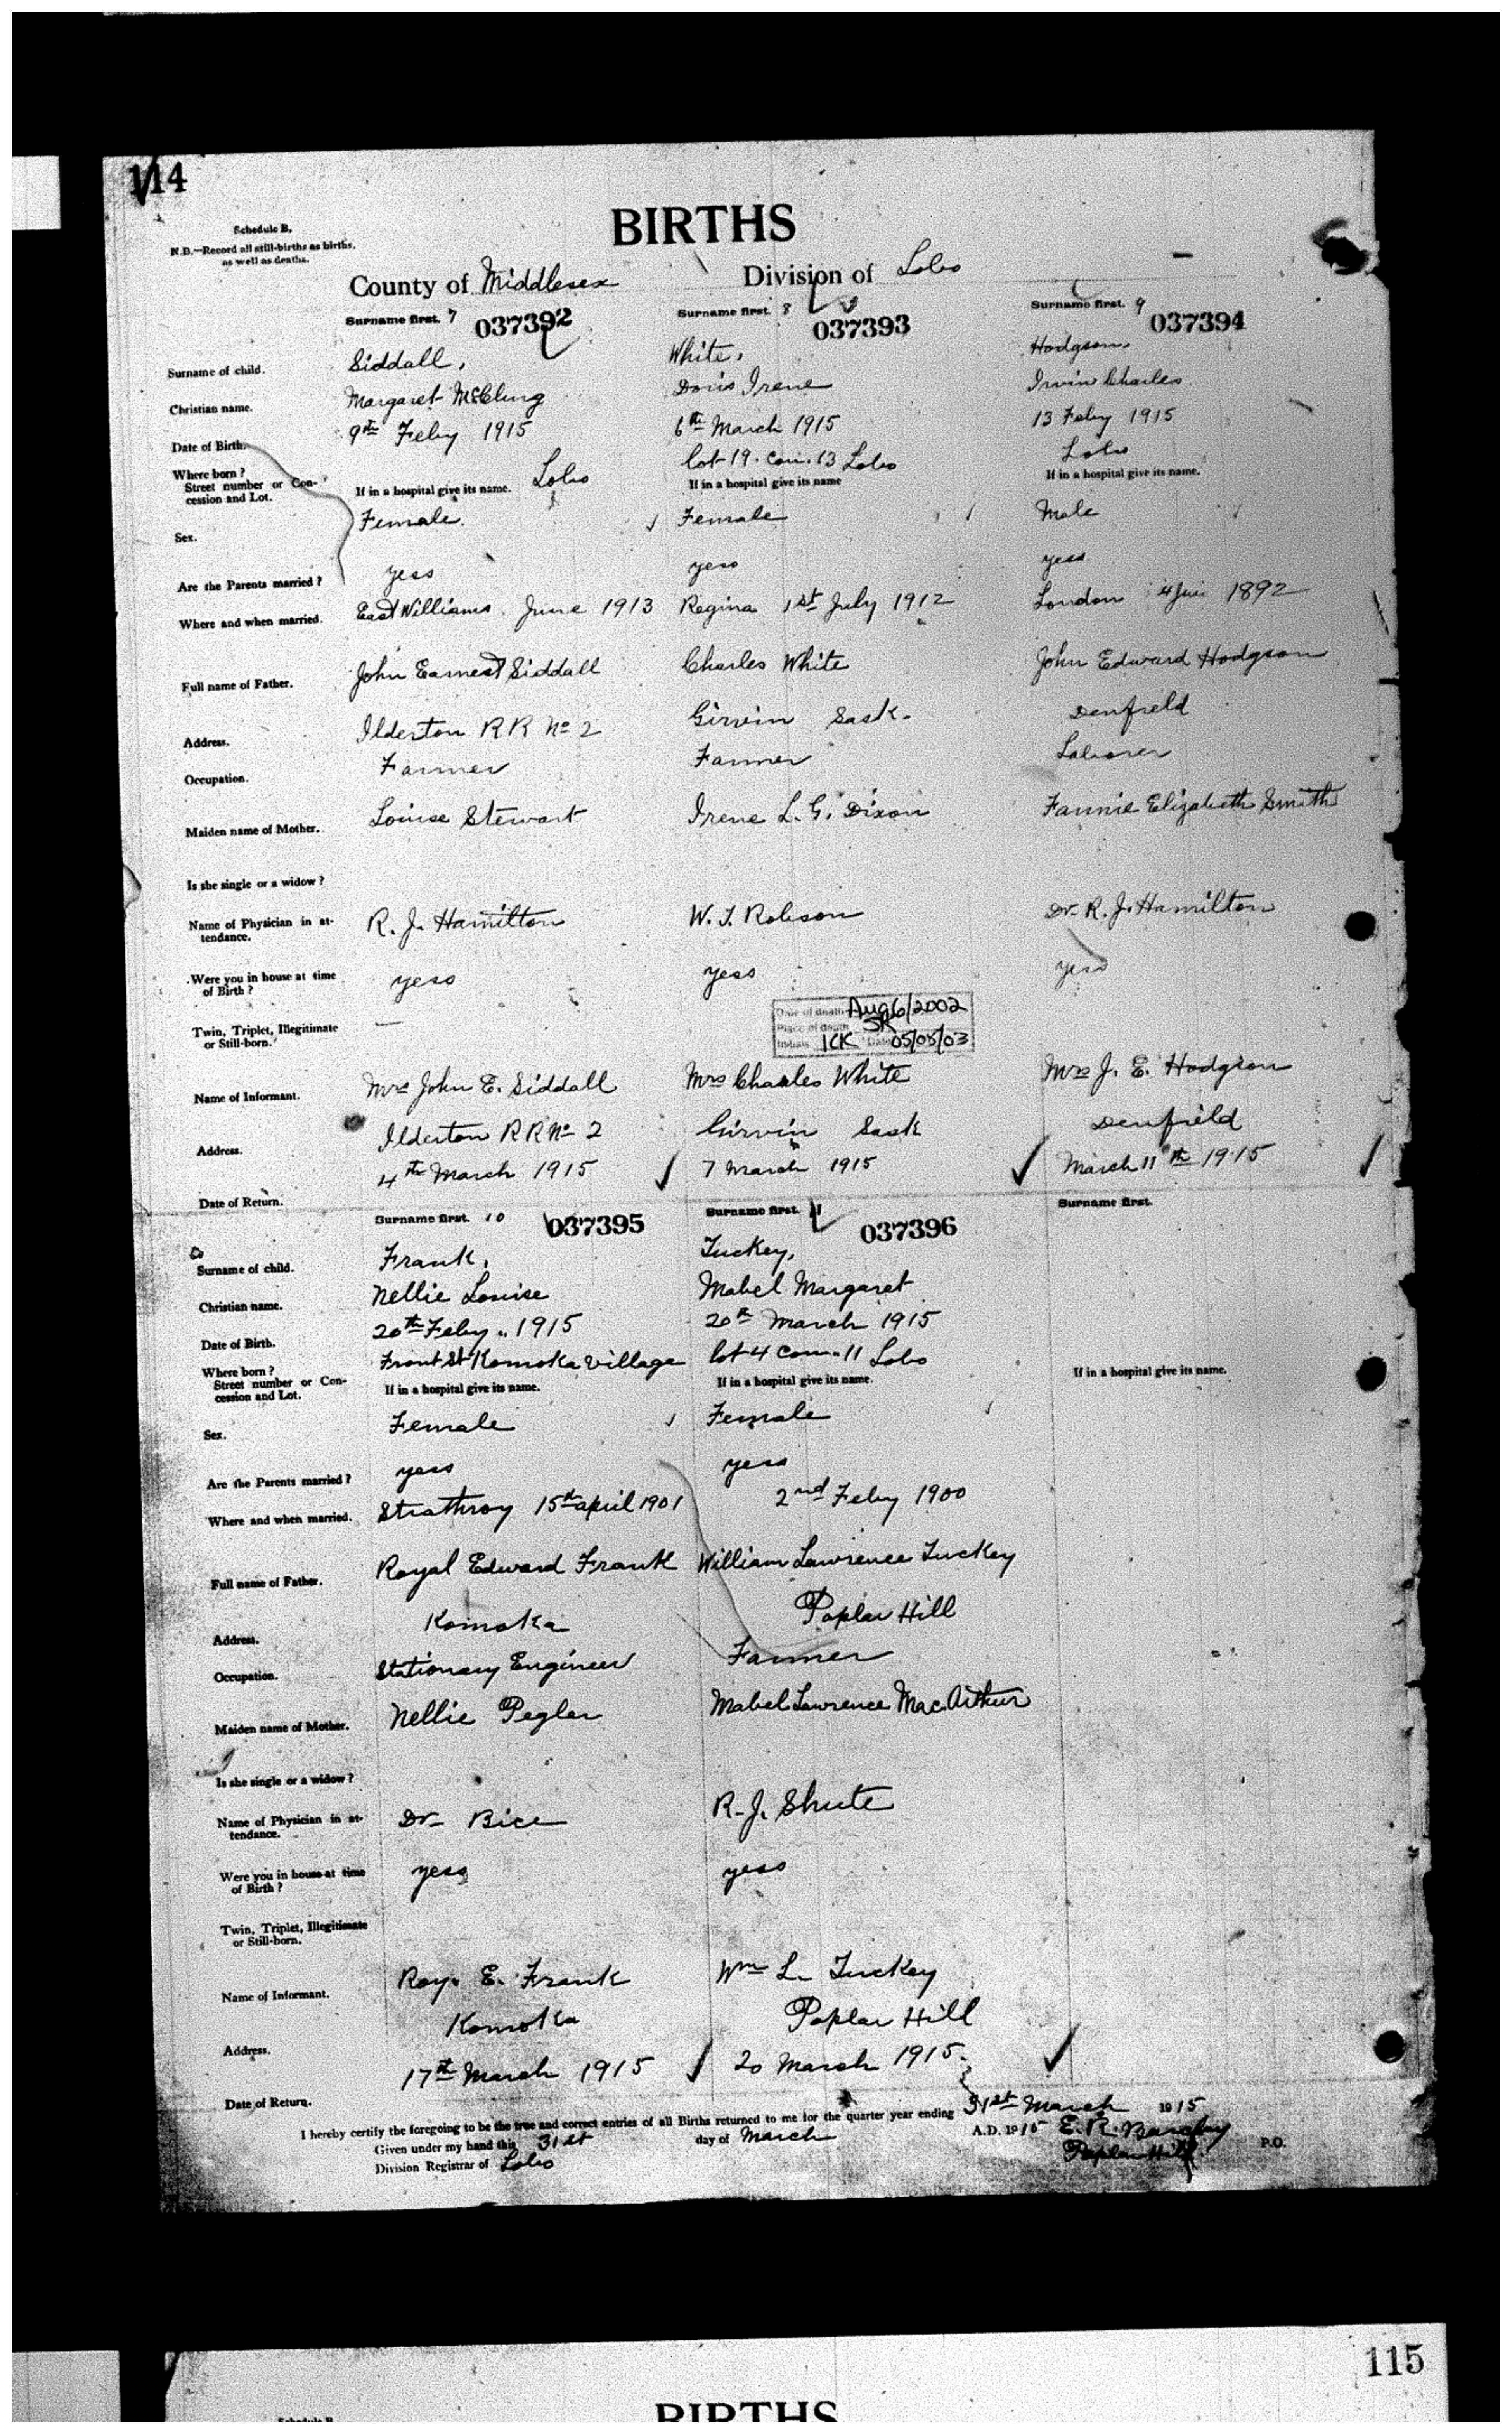 114
Schedule B,
N.B.—Record all still-births as births,
as well as deaths.
BIRTHS
County of Middlesex Division of Lobo
Surname first. 7 037392 Surname first. 8 037393 Surname first. 9 037394
Surname of child. Siddall, White, Hodgson,
Christian name. Margaret McClung Doris Irene Irwin Charles
Date of Birth. 9th Feby 1915 6th March 1915 13 Feby 1915
Where born?
Street number or Concession and Lot. Lobo lot 19. con. 13 Lobo Lobo
If in a hospital give its name. If in a hospital give its name If in a hospital give its name.
Sex. Female. Female Male
Are the Parents married? yess yess yess
Where and when married. East Williams. June 1913 Regina 1st July 1912 London 1892
Full name of Father. John Earnest Siddall Charles White John Edward Hodgson
Address. Ilderton RR No 2 Girvin Sask. Denfield
Occupation. Farmer Farmer Laborer
Maiden name of Mother. Louise Stewart Irene L. G. Dixon Fannie Elizabeth Smith
Is she single or a widow?
Name of Physician in attendance. R. J. Hamilton W. J. Robson Dr. R. J. Hamilton
Were you in house at time of Birth? yess yess yess
Twin, Triplet, Illegitimate or Still-born. —
Date of death Aug 6/2002
Place of death SK
Initials ICK Date 05/05/03
Name of Informant. Mrs John E. Siddall Mrs Charles White Mrs J. E. Hodgson
Address. Ilderton RR No 2 Girvin Sask Denfield
Date of Return. 4th March 1915 7 March 1915 March 11th 1915
Surname first. 10 037395 Surname first. 11 037396 Surname first.
Surname of child. Frank, Tuckey,
Christian name. Nellie Louise Mabel Margaret
Date of Birth. 20th Feby. 1915 20th March 1915
Where born?
Street number or Concession and Lot. Front St Komoka Village lot 4 con. 11 Lobo
If in a hospital give its name. If in a hospital give its name. If in a hospital give its name.
Sex. Female Female
Are the Parents married? yess yess
Where and when married. Strathroy 15th april 1901 2nd Feby 1900
Full name of Father. Royal Edward Frank William Lawrence Tuckey
Address. Komoka Poplar Hill
Occupation. Stationary Engineer Farmer
Maiden name of Mother. Nellie Pegler Mabel Lawrence MacArthur
Is she single or a widow?
Name of Physician in attendance. Dr. Bice R. J. Shute
Were you in house at time of Birth? yess yess
Twin, Triplet, Illegitimate or Still-born.
Name of Informant. Roy. E. Frank Wm L. Tuckey
Address. Komoka Poplar Hill
Date of Return. 17th March 1915 20 March 1915.
I hereby certify the foregoing to be the true and correct entries of all Births returned to me for the quarter year ending 31st March 1915
Given under my hand this 31st day of March A.D. 1915 E. R.
Division Registrar of Lobo Poplar Hill P.O.
115
Schedule B,
BIRTHS